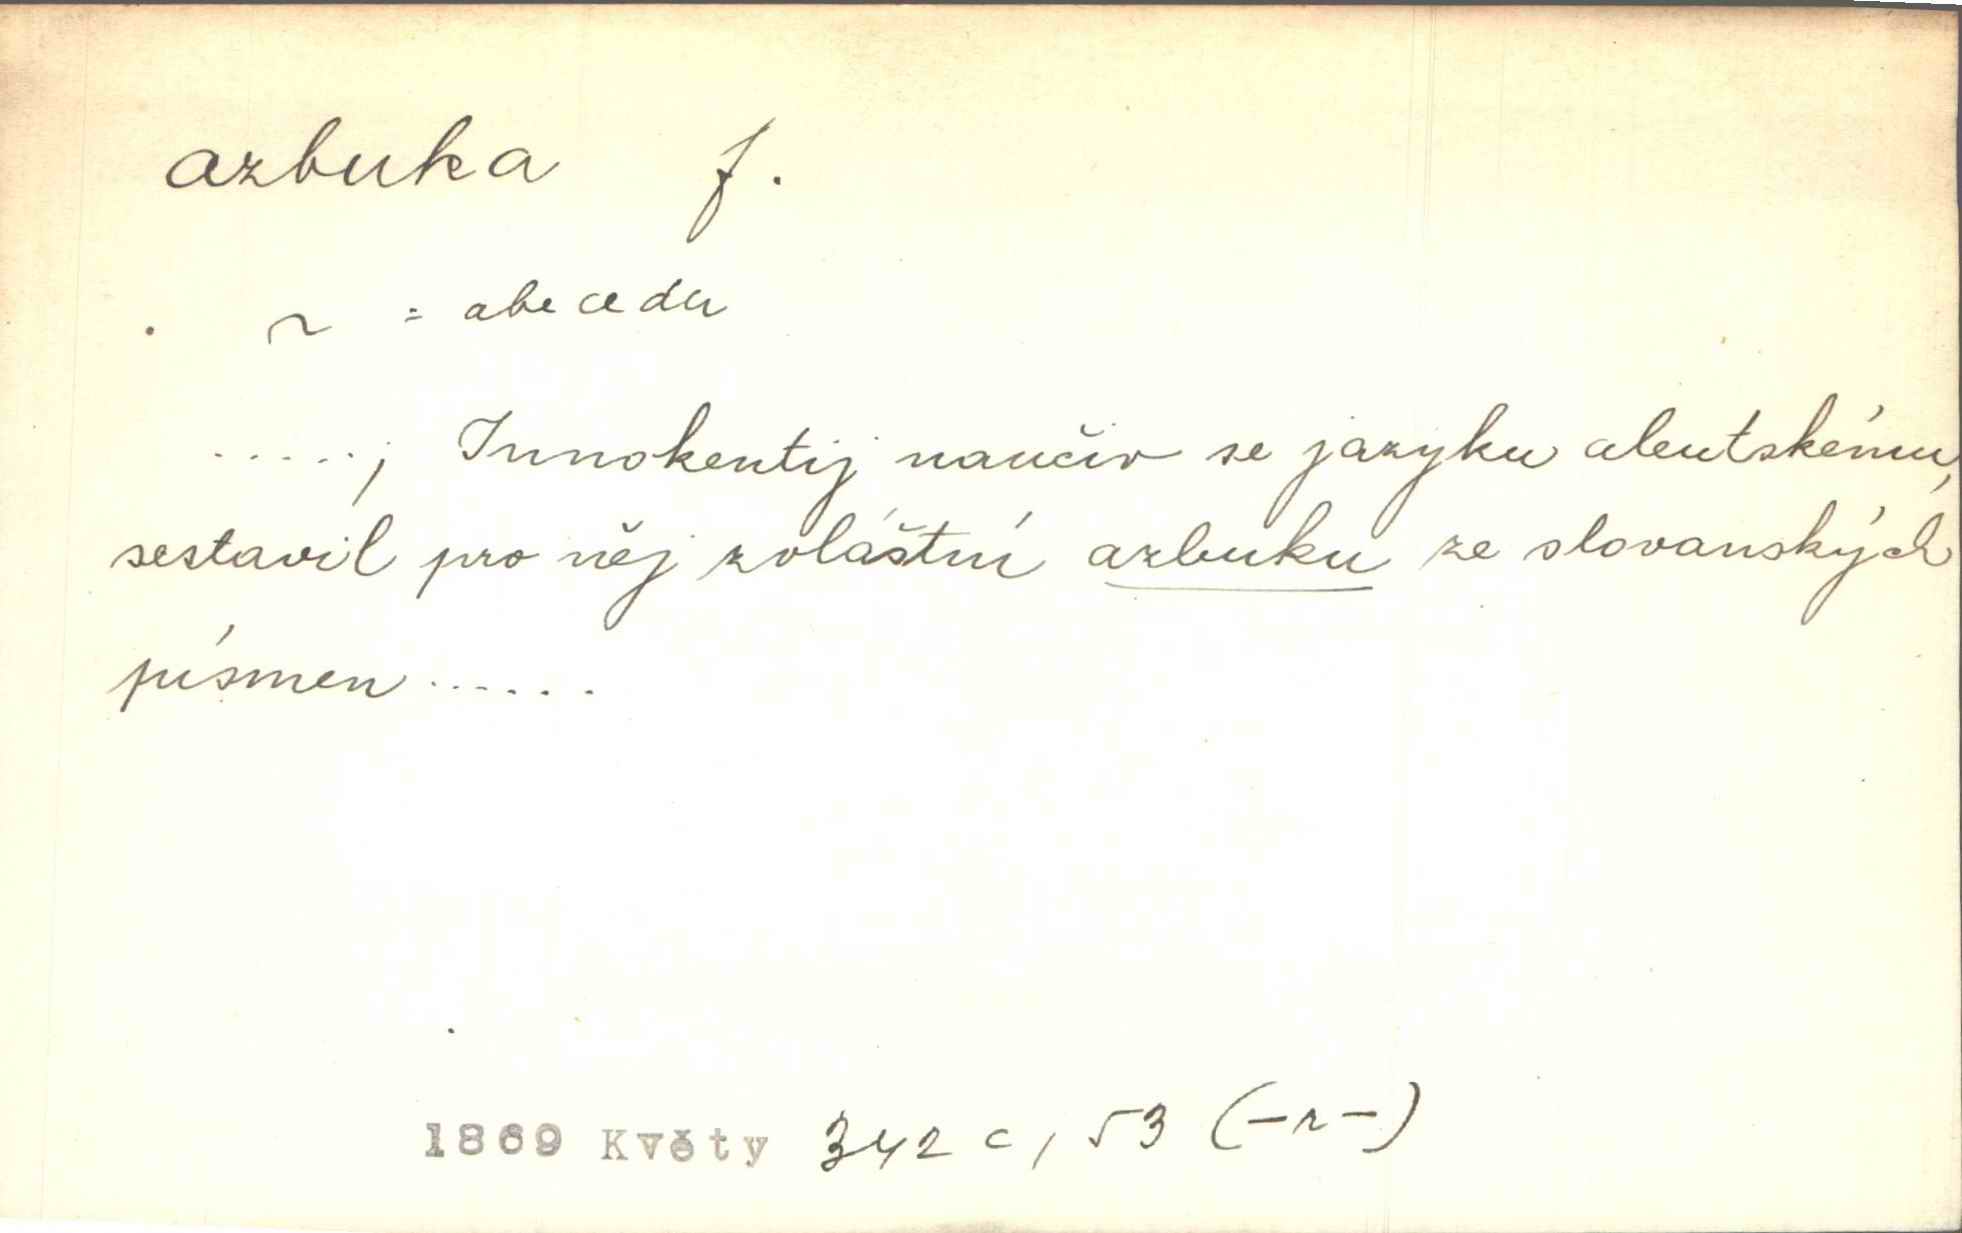 azbuka f.
~ = abeceda
.....; Innokentij naučiv se jazyku aleutskému,
sestavil pro něj zvláštní azbuku ze slovanských
písmen ......
1869 Květy 342 c, 53 (-r-)